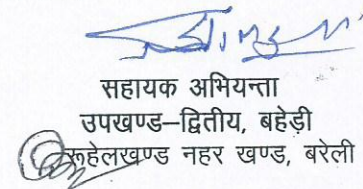 सहायक अभियन्ता
उपखण्ड–द्वितीय, बहेड़ी
रूहेलखण्ड नहर खण्ड, बरेली